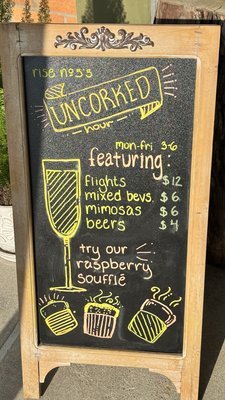 rise no3's
UNCORKED
hour
mon-fri 3-6
featuring:
flights $12
mixed bevs. $6
mimosas $6
beers $4
try our
raspberry
soufflé